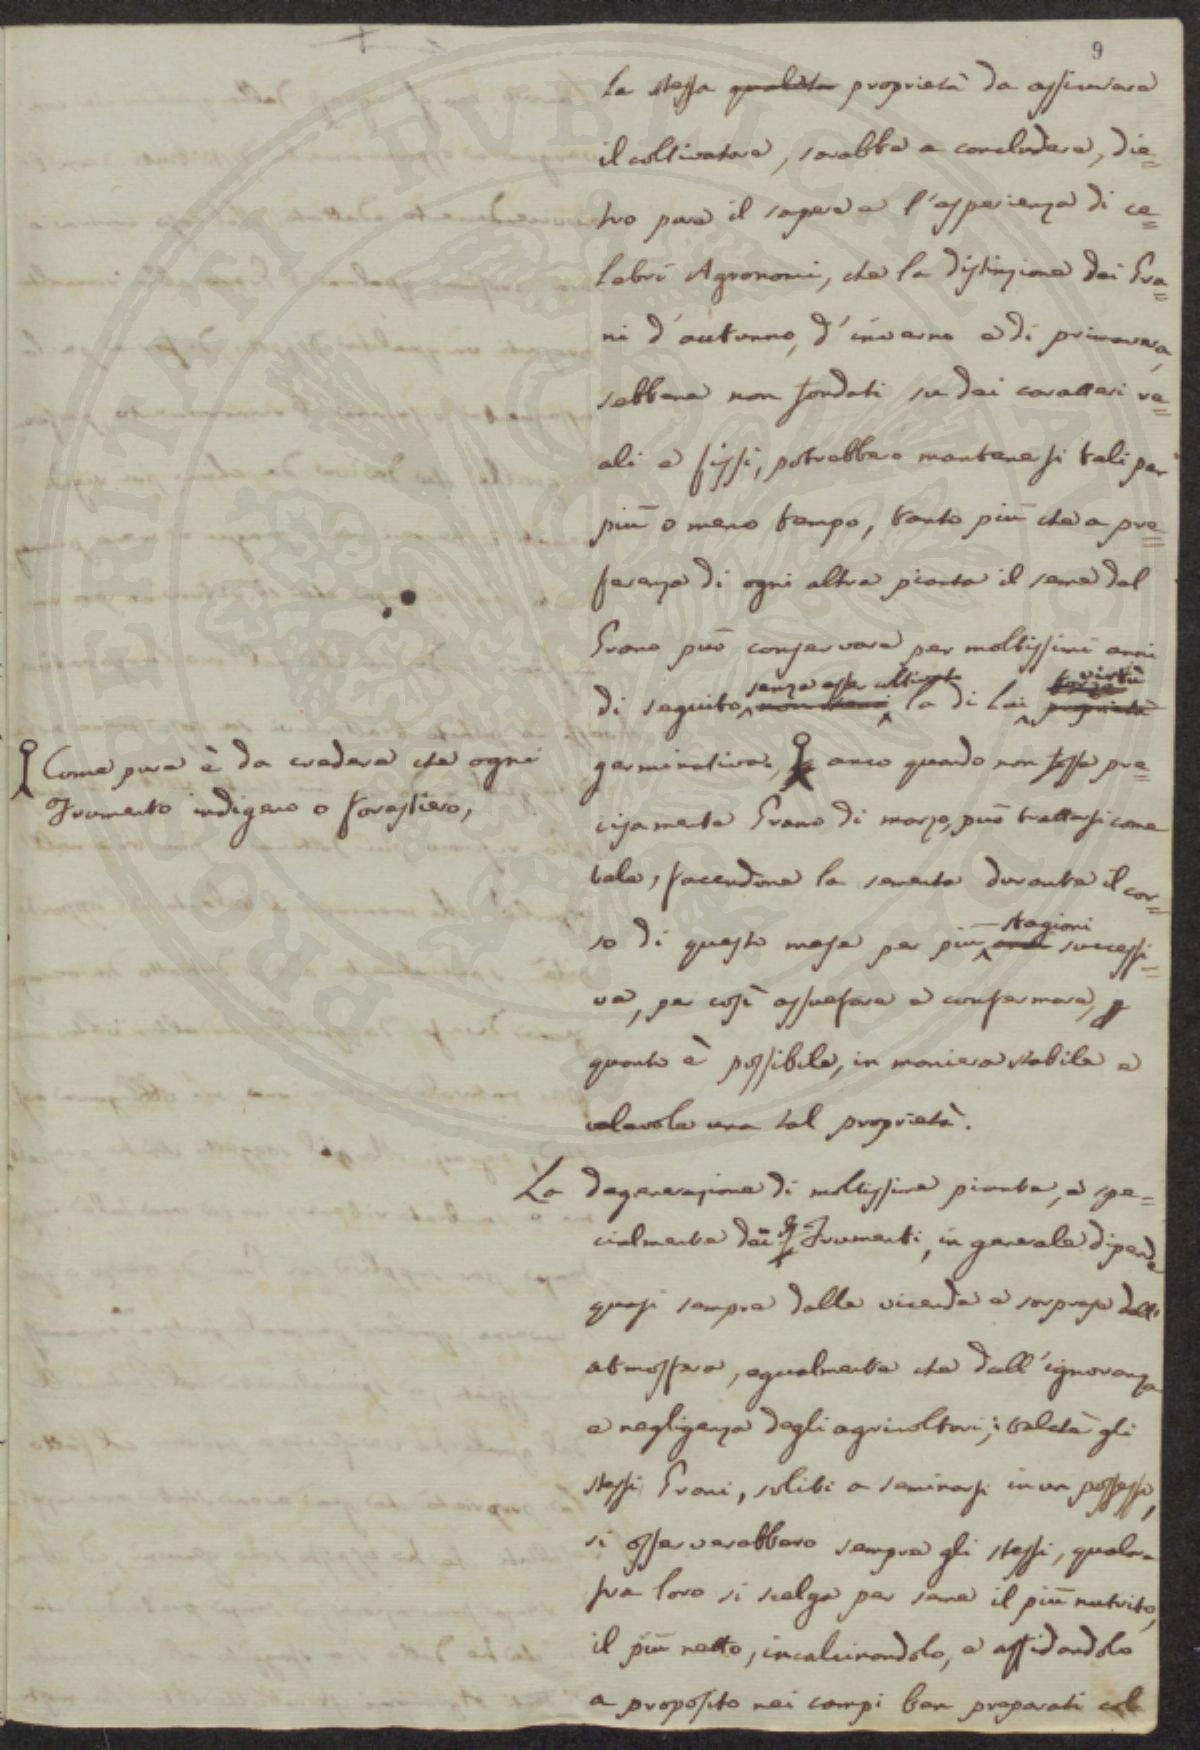 9
la stessa qualita proprietà da assicurare
il coltivatore, sarebbe a concludere, die=
tro pure il sapere e l'esperienza di ce=
lebri Agronomi, che la distinzione dei Gra=
ni d'autunno, d'inverno e di primavera,
sebbene non fondati su dei caratteri re=
ali e fissi, potrebbero mantenersi tali per
più o meno tempo, tanto più che a pre=
ferenza di ogni altra pianta il seme del
Grano può conservare per moltissimi anni
senza esser coltivato virtù
di seguito la di lui proprietà
germinativa, anco quando non fosse pre=
Come pure è da credere che ogni
Frumento indigeno o forastiero,
cisamente Grano di marzo, può trattarsi come
tale, facendone la sementa durante il cor=
so di questo mese per più stagioni successi=
ve, per così assuefare e confermare,
quanto è possibile, in maniera stabile e
valevole una tal proprietà.
La degenerazione di moltissime piante, e spe=
cialmente dei Frumenti, in generale dipende
quasi sempre dalle vicende e sorprese dell'
atmosfera, egualmente che dall'ignoranza
e negligenza degli agricoltori; talchè gli
stessi Grani, soliti a seminarsi in un possesso,
si osserverebbero sempre gli stessi, qualora
fra loro si scelga per seme il più nutrito,
il più netto, incalcinandolo, e affidandolo
a proposito nei campi ben preparati col